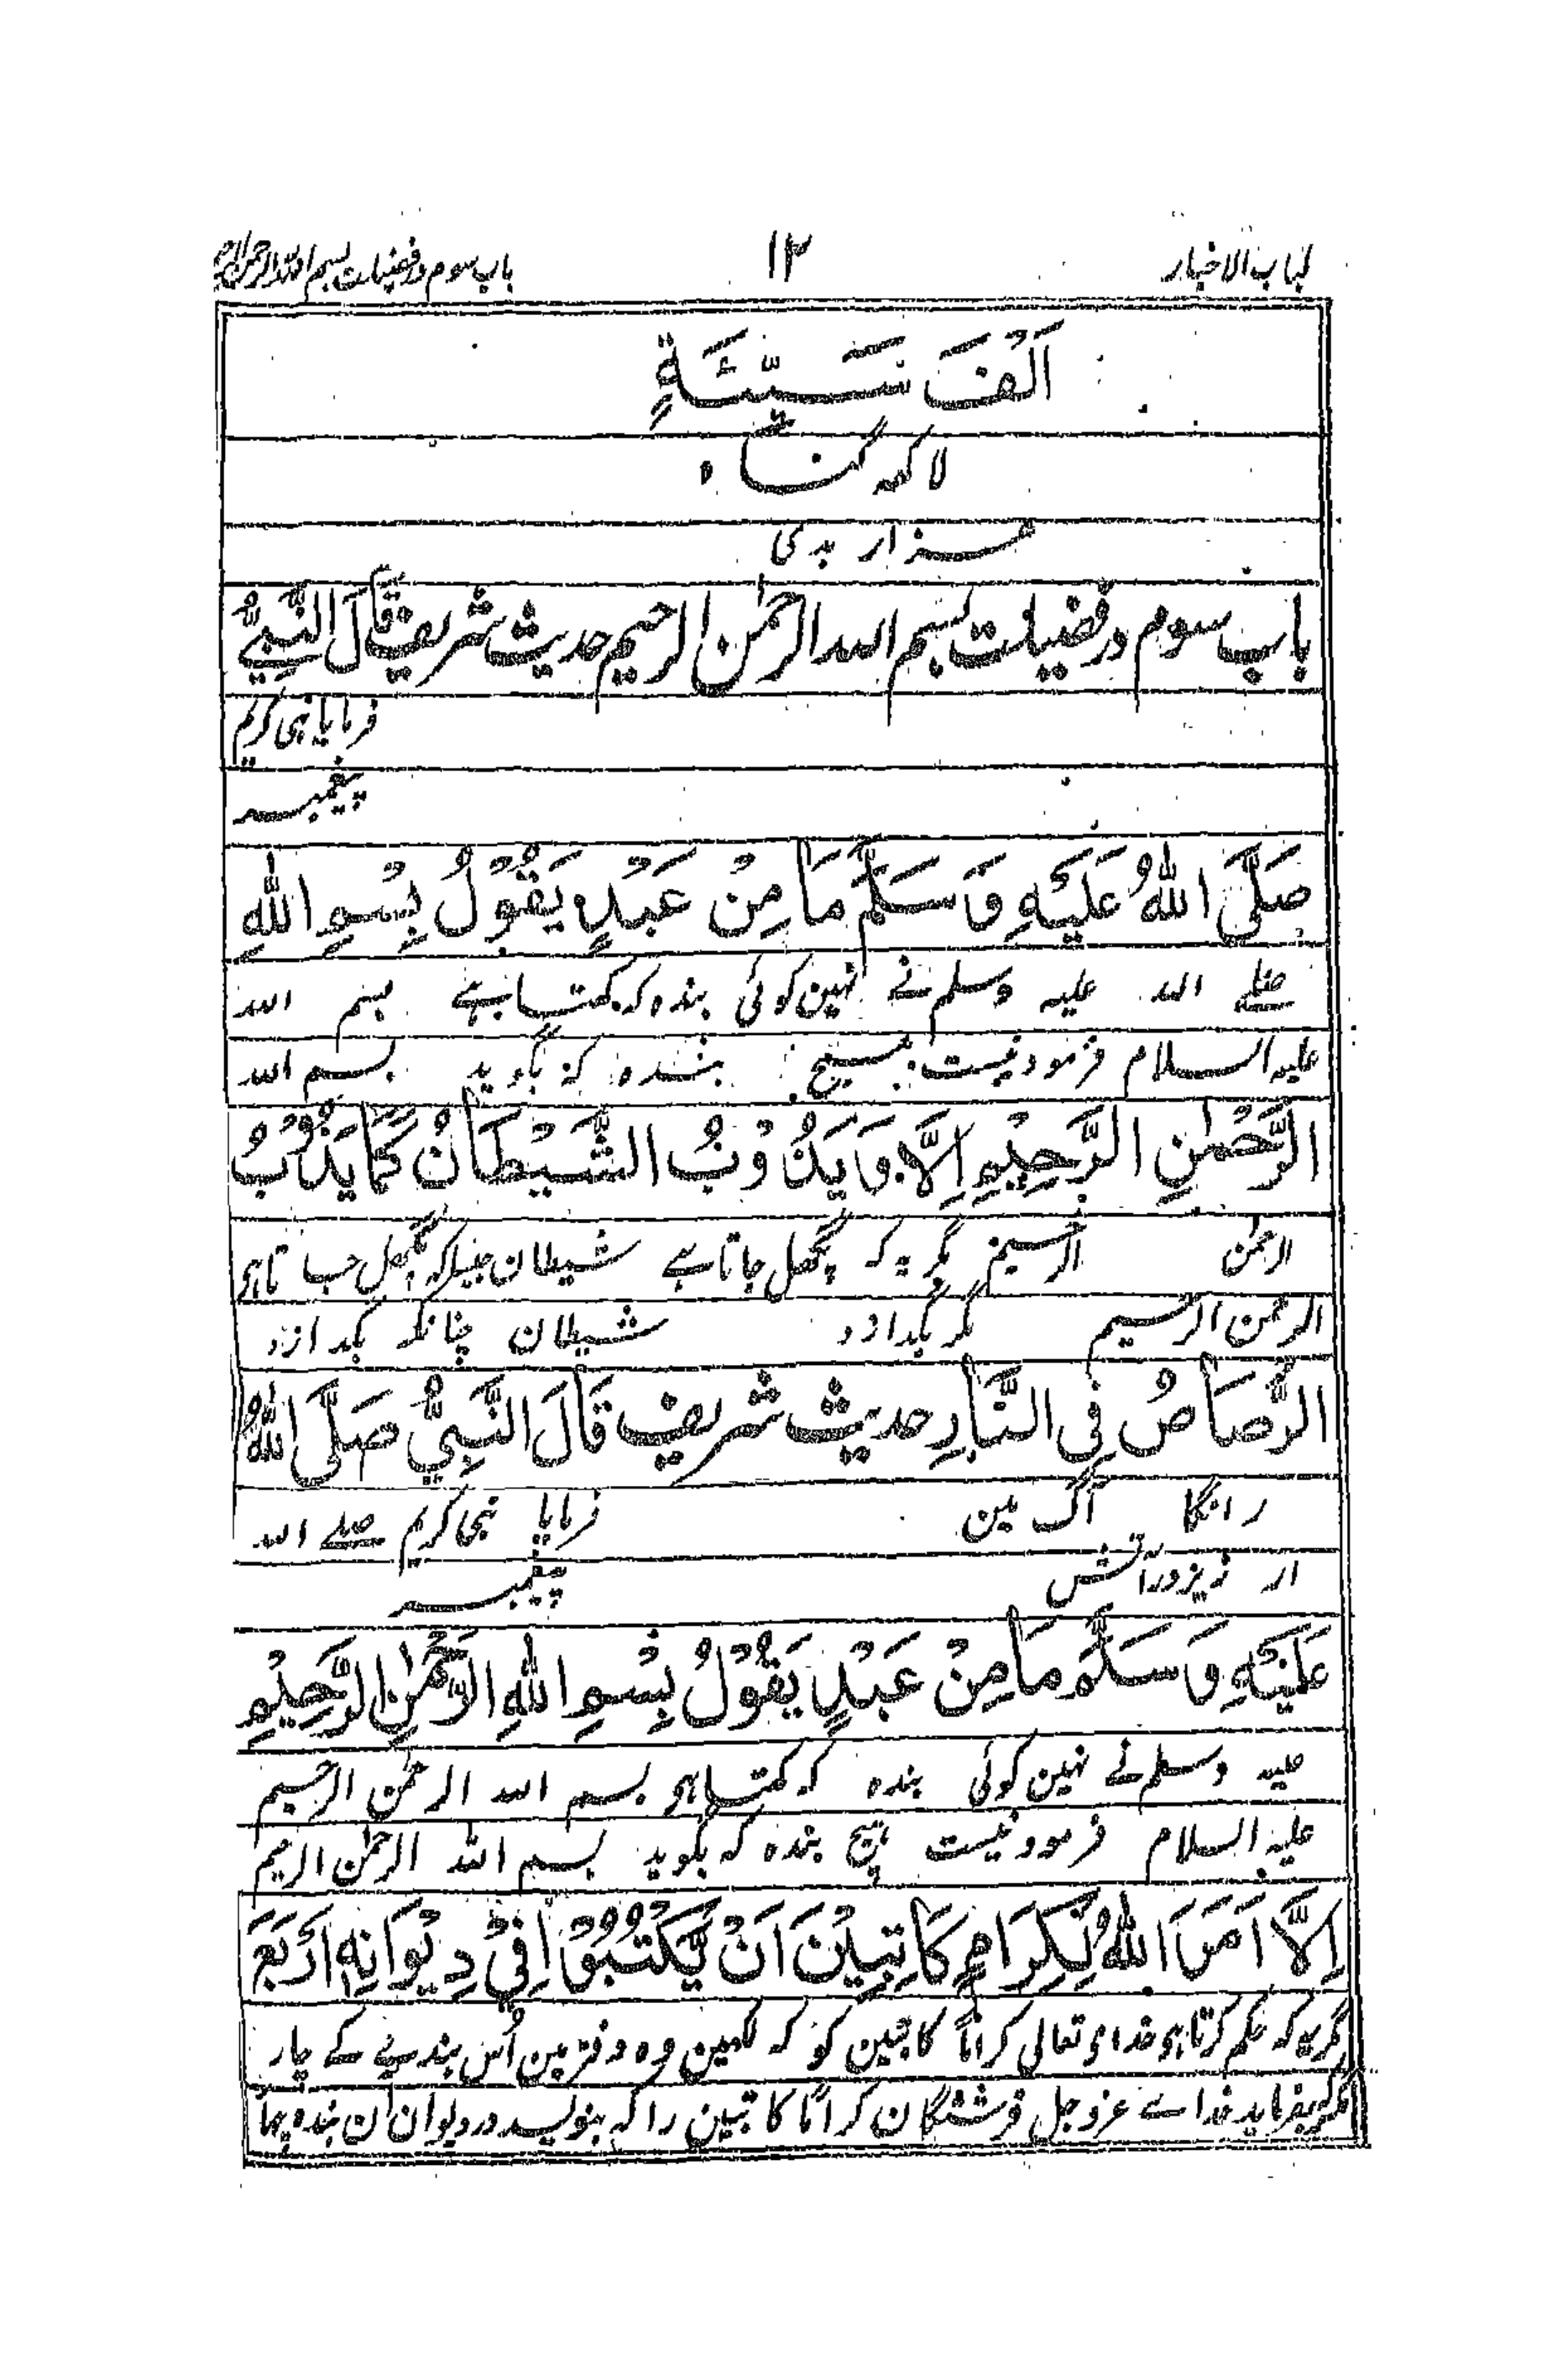 لباب الاخبار ۱۲ باب سوم در فضیلت بسم الله الرحمن الرحیم
اَلْفَ سَیِّئَةٍ
لاکھہ گناہ
ہزار بدی
باب سوم در فضیلت بسم اللہ الرحمٰن الرحیم حدیث شریف قَالَ النَّبِیُّ
فرمایا نبی کریم
پیغمبر
صَلَّی اللّٰهُ عَلَیْهِ وَسَلَّمَ مَا مِنْ عَبْدٍ یَقُوْلُ بِسْمِ اللّٰهِ
صلے اللہ علیہ وسلم نے نہین کوئی بندہ کہ کہتا ہے بسم اللہ
علیہ السلام فرمود نیست ہیچ بندہ کہ بگوید بسم اللہ
الرَّحْمٰنِ الرَّحِیْمِ اِلَّا وَیَذُوْبُ الشَّیْطَانُ كَمَا یَذُوْبُ
الرحمٰن الرحیم مگر یہ کہ پگھل جاتا ہے شیطان جیسا کہ پگھل جاتا ہی
الرحمن الرحیم مگر بگدازد شیطان چنانکہ بگدازد
الرَّصَاصُ فِی النَّارِ حدیث شریف قَالَ النَّبِیُّ صَلَّی اللّٰهُ
رانگا آگ مین فرمایا نبی کریم صلے اللہ
ارزیز در آتش پیغمبر
عَلَیْهِ وَسَلَّمَ مَا مِنْ عَبْدٍ یَقُوْلُ بِسْمِ اللّٰهِ الرَّحْمٰنِ الرَّحِیْمِ
علیہ وسلم نے نہین کوئی بندہ کہ کہتا ہی بسم اللہ الرحمٰن الرحیم
علیہ السلام فرمود نیست ہیچ بندہ کہ بگوید بسم اللہ الرحمٰن الرحیم
اِلَّا اَمَرَ اللّٰهُ لِكِرَامٍ كَاتِبِیْنَ اَنْ یَّكْتُبُوْا فِیْ دِیْوَانِهٖ اَرْبَعَ
مگر یہ کہ حکم کرتا ہی خدای تعالی کراماً کاتبین کو کہ لکھین وہ دفتر مین اُس بندے کے چار
مگر کہ بفرماید خداے عزوجل فرشتگان کراماً کاتبین را کہ بنویسد در دیوان آن بندہ چہار